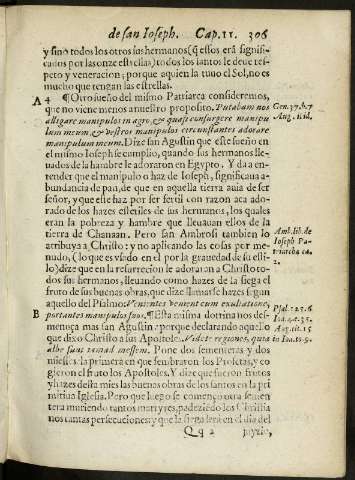 de san Ioseph. Cap. 11. 306
y sino todos los otros sus hermanos (q̃ essos erã signifi-
cados por las onze estrellas) todos los santos le deuē res-
peto y veneracion; porque a quien la tuuo el Sol, no es
mucho que tengan las estrellas.
A 4 ¶ Otro sueño del mismo Patriarca consideremos,
que no viene menos a nuestro proposito. Putabam nos
Gen. 37. b. 7
Aug. ibid.
allegare manipulos in agro, & quasi consurgere manipu
lum meum, & vestros manipulos circunstantes adorare
manipulum meum. Dize san Agustin que este sueño en
el mismo Ioseph se cumplio, quando sus hermanos lle-
uados de la hambre le adoraron en Egypto. Y da a en-
tender que el manipulo o haz de Ioseph, significaua a-
bundancia de pan, de que en aquella tierra auia de ser
señor, y que este haz por ser fertil con razon aca ado-
rado de los hazes esteriles de sus hermanos, los quales
eran la pobreza y hambre que lleuauan ellos de la
tierra de Chanaan. Pero san Ambrosio tambien lo
Amb. lib. de
Ioseph Pa-
triarcha ca.
2.
atribuy a Christo: y no aplicando las cosas por me-
nudo, (lo que es vsado en el por la grauedad de su esti-
lo) dize que en la resurrecion le adoraran a Christo to-
dos sus hermanos, lleuando como hazes de la siega el
fruto de sus buenas obras, que dize llamarse hazes segun
aquello del Psalmo: Venientes venient cum exultatione,
Psal. 125. 6
B portantes manipulos suos. ¶ Esta misma dotrina nos de-
Ioa. 4. e. 35.
mençoa mas san Agustin: porque declarando aquello
Aug. tit. 15
que dixo Christo a sus Apostoles. Videte regiones, quia
in Ioa. to. 9.
albe sunt iam ad messem. Pone dos sementeras y dos
miesses: la primera en que sembraron los Profetas, y co-
gieron el fruto los Apostoles. Y dize que fueron frutos
y hazes desta mies las buenas obras de los santos en la pri
mitiua Iglesia. Pero que luego se començo otra semen-
tera muriendo tantos martyres, padeziēdo los Christia
nos tantas persecuciones: y que la siega sera en el dia del
Qq 2 juyzio,